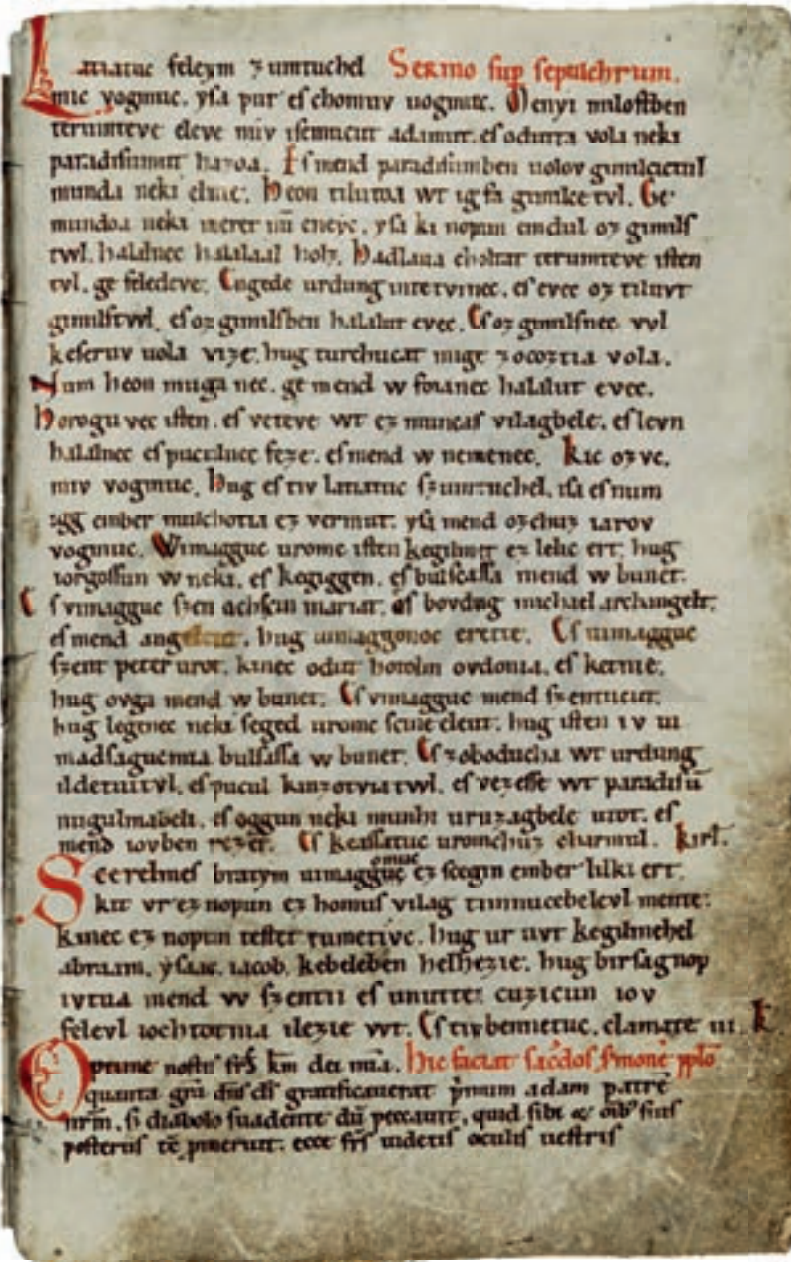 Latiatuc feleym zumtuchel Sermo sup sepulchrum.
mic vogmuc. ysa pur es chomuv uogmuc. Menyi milostben
terumteve eleve miv isemucut adamut. es odutta vola neki
paradisumut hazoa. Es mend paradisumben uolov gimilcictul
munda neki elnie. Heon tilutoa wt igfa gimilce tvl. Ge
mundoa neki meret nū eneyc. ysa ki nopun emdul oz gimils
twl. halalnec halalaal holz. Hadlaua choltat terumteve isten
tvl. ge feledeve. Engede urdung intetvinec. es evec oz tiluvt
gimilstwl. es oz gimilsben halalut evec. Es oz gimilsnec vvl
keseruv uola vize. hug turchucat mige zocoztia vola.
Num heon muga nec. ge mend w foianec halalut evec.
Horogu vec isten. es veteve wt ez muncas vilagbele. es levn
halalnec es puculnec feze. es mend w nemenec. Kic ozvc.
miv vogmuc. Hug es tiv latiatuc szumtuchel. isa es num
igg ember mulchotia ez vermut. ysa mend ozchuz iarov
vogmuc. Wimagguc uromc isten kegilmet ez lelic ert. hug
iorgossun w neki. es kegiggen. es bulscassa mend w bunet.
Es vimagguc szen achscin mariat. es bovdug michael archangelt.
es mend angelcut. hug uimaggonoc erette. Es uimagguc
szent peter urot. kinec odut hotolm ovdonia. es ketnie.
hug ovga mend w bunet. Es vimagguc mend szentucut.
hug legenec neki seged uromc scine eleut. hug isten iv ui
madsaguc mia bulsassa w bunet. Es zoboducha wt urdung
ildetuitvl. es pucul kinzotviatwl. es vezesse wt paradisū
nugulmabeli. es oggun neki munhi uruzagbele utot. es
mend iovben rezet. Es keassatuc uromchuz charmul. kirl.
Scerelmes bratym uimagguc omuc ez scegin ember lilki ert.
kit vr ez nopun ez homus vilag timnucebelevl mente.
kinec ez nopun testet tumetivc. hug ur uvt kegilmehel
abraam. ysaac. iacob. kebeleben helhezie. hug birsagnop
ivtua mend w szentii es unuttei cuzicun iov
felevl iochtotnia ilezie wt. Es tivbennetuc. clamate iii. K.
Optime nostis frs̄ km̄ dei mīa. Hic faciat sac̄dos s̄monē pplō
quanta grā dn̄s ds̄ gratificauerat p̄mum adam patrē
nrm̄. si diabolo suadente dū peccauit, quid sibi & oīb suis
posteris tē pmerunt. ecce frs̄ uidetis oculis uestris